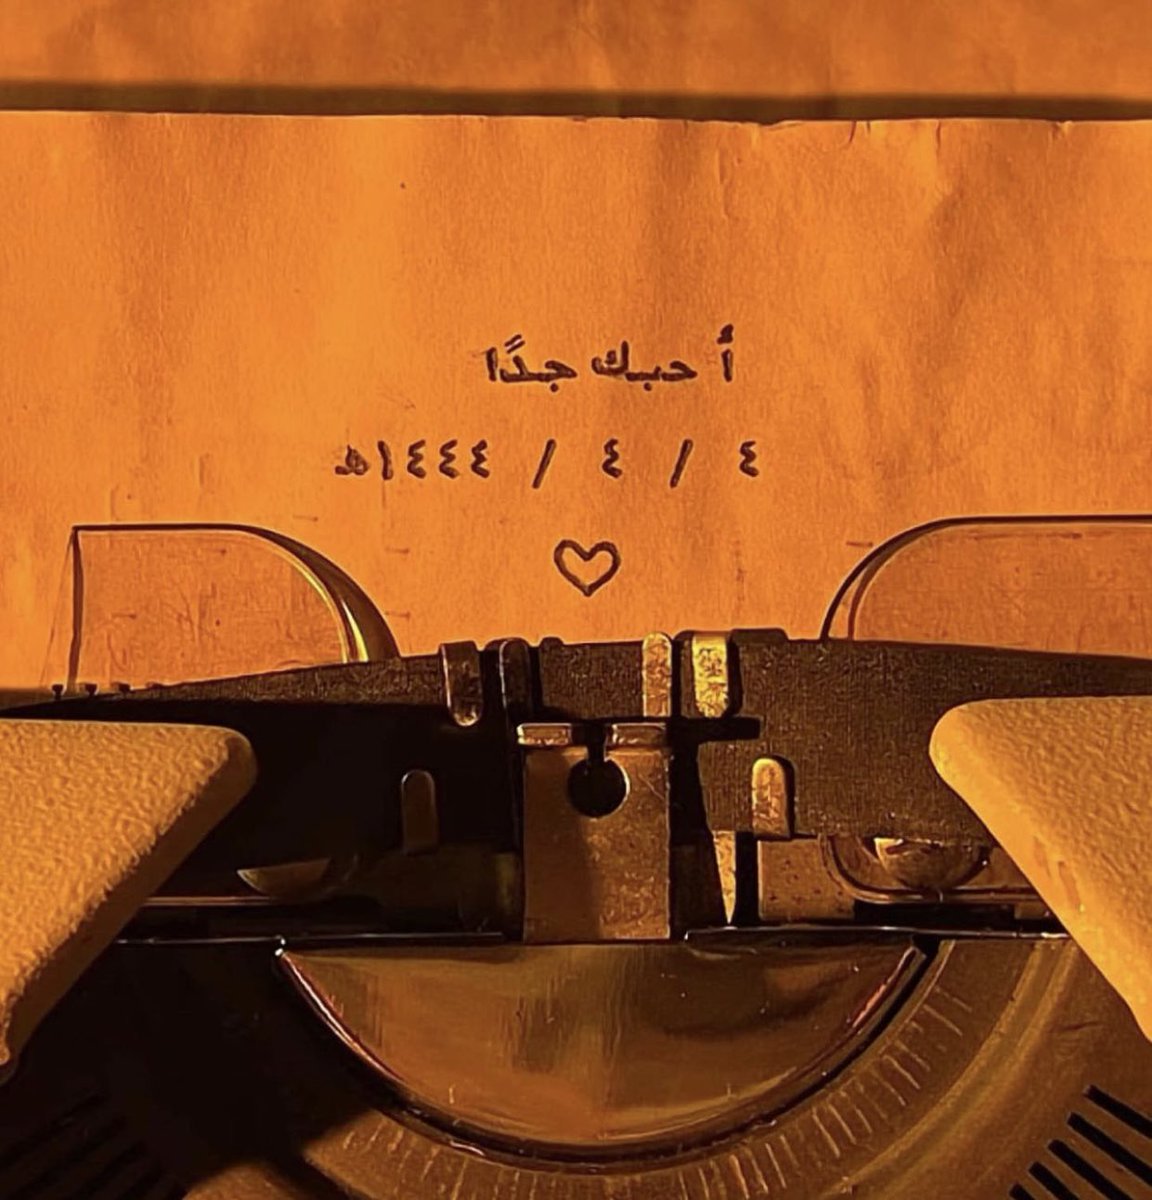 أحبك جدًا
٤ / ٤ / ١٤٤٤هـ